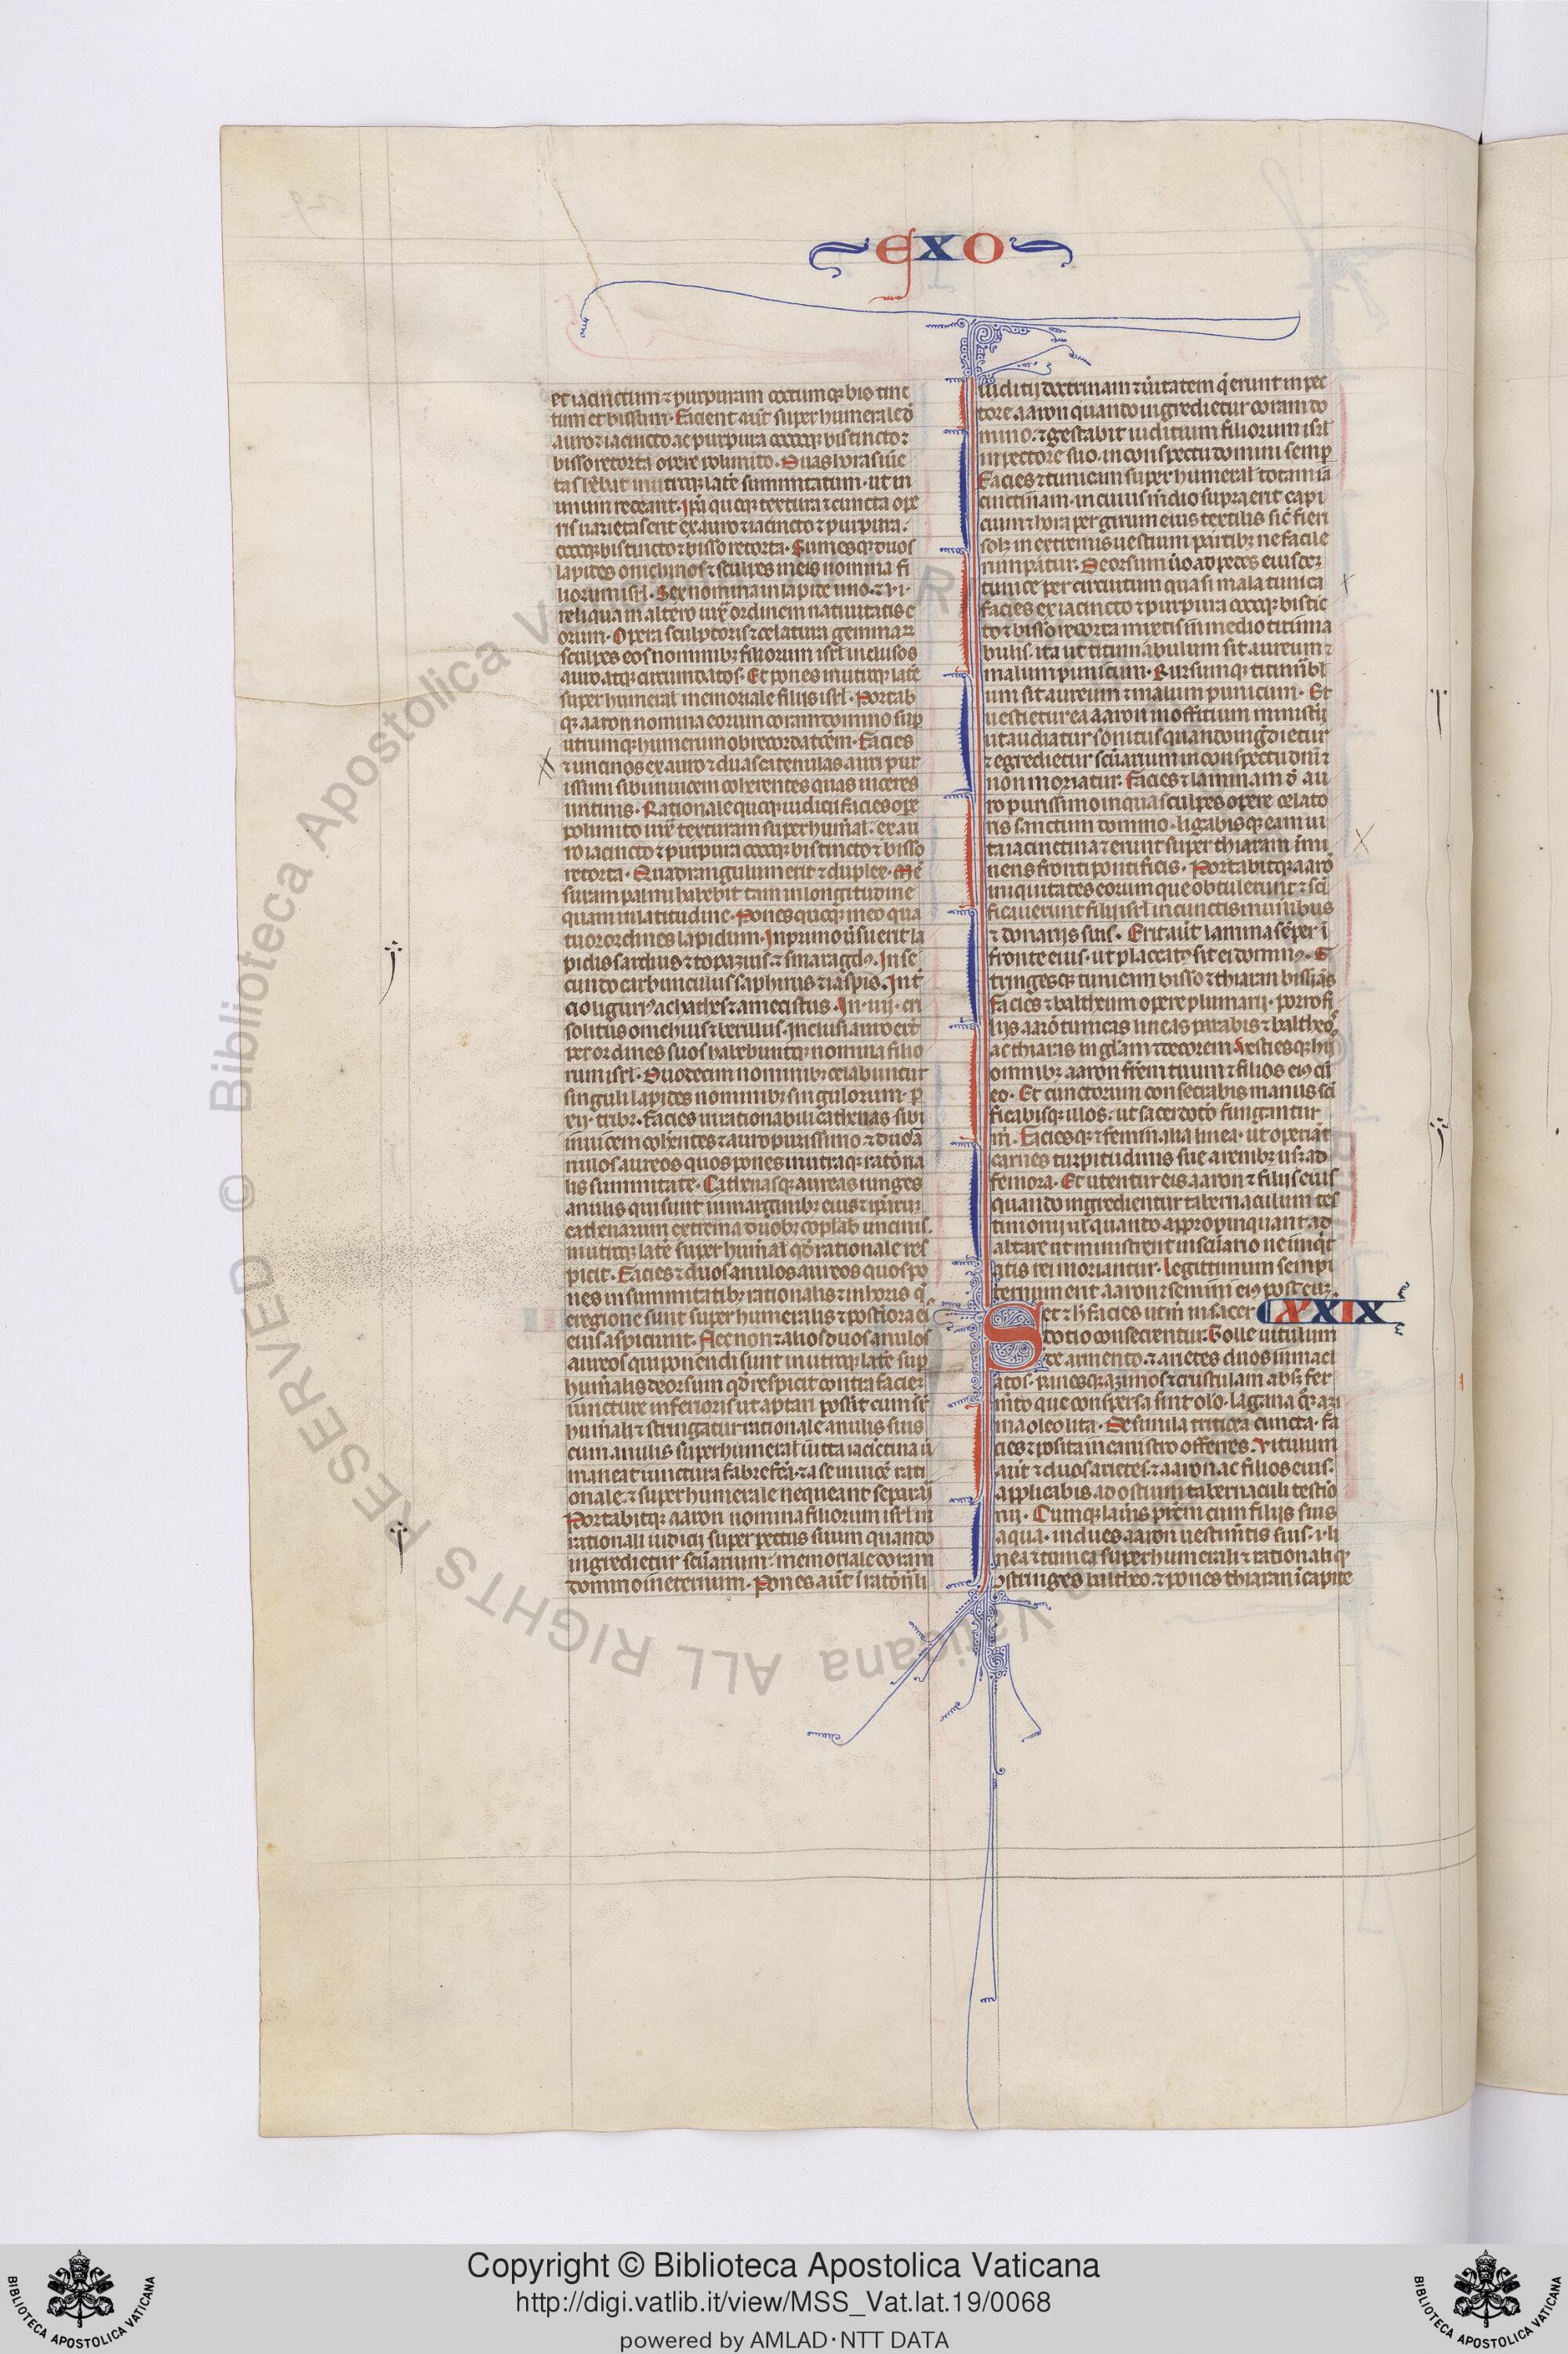 EXO
et iacinctum ⁊ purpuram coccumq; bis tinc
tum et bissum. Facient aūt super humerale d̄
auro ⁊ iacincto ac purpura coccoq; bis tincto ⁊
bisso retorta opere polimito. Duas horas iūc
tas hēbit in utroq; lat̄e summitatum. ut in
unum redeant. Ip̄a quoq; textura ⁊ cuncta ope
ris uarietas erit ex auro ⁊ iacincto ⁊ purpura.
coccoq; bis tincto ⁊ bisso retorta. Sumesq; duos
lapides onichinos ⁊ sculpes in eis nomina fi
liorum isrl. Sex nomina in lapide uno. ⁊ vi.
reliqua in altero iux̄ ordinem natiuitatis e
orum. Opera sculptoris ⁊ celatura gemmaꝝ
sculpes eos nominibꝫ filiorum isrl inclusos
auro atq; circumdatos. Et pones in utroq; lat̄e
super humeral memoriale filijs isrl. Portab
q; aaron nomina eorum coram domino sup
utrumq; humerum ob recordatōem. Facies
⁊ uncinos ex auro ⁊ duas catenulas auri pur
issimi sibi inuicem coherentes quas inceres
uncinis. Rationale quoq; iudicii facies ope
polimito iux̄ texturam superhum̄al. ex au
ro iacincto ⁊ purpura coccoq; bis tincto ⁊ bisso
retorta. Quadrangulum erit ⁊ duplex. Mē
suram palmi habebit tam in longitudine
quam in latitudine. Pones quoq; in eo qua
tuor ordines lapidum. In primo ūsu erit la
pidis sardius ⁊ topazius. ⁊ smaragdꝰ. In se
cundo carbunculus saphirus ⁊ iaspis. In t̄
cio liguriꝰ achathes ⁊ ametistus. In. iiij. cri
solitus onichius ⁊ berillus. Inclusi auro erūt
per ordines suos habebuntq; nomina filio
rum isrl. Duodecim nominibꝫ celabuntur
singuli lapides nominibꝫ singulorum. p̄
xij. tribꝫ. Facies in rationabili cathenas sibi
inuicem coherentes ⁊ auro purissimo ⁊ duos ā
nulos aureos quos pones in utraq; ratōna
lis summitate. Cathenasq; aureas iunges
anulis qui sunt in marginibꝫ eius ⁊ ipsarum
cathenarum extrema duobꝫ coplab uncinis.
in utroq; lat̄e super hum̄al qd̄ rationale res
picit. Facies ⁊ duos anulos aureos quos po
nes in summitatibꝫ rationalis in horis q̄
e regione sunt super humeralis ⁊ postiora ei
eius aspiciunt. Nec non ⁊ alios duos anulos
aureos qui ponendi sunt in utroq; lat̄e sup
hum̄alis deorsum qd̄ respicit contra faciem
iuncture inferioris ut aptari possit cum sup̄
hum̄ali ⁊ stringatur rationale anulis suis
cum anulis superhumeral uitta iacictina ū
maneat iunctura fabrefc̄a. ⁊ a se inuicē rati
onale. ⁊ super humerale nequeant separari
Portabitq; aaron nomina filiorum isrl in
rationali iudicij super pectus suum quando
ingredietur scūarium. memoriale coram
domino in eternum. Pones aūt ī ratōn̄li
iuditij doctrinam ⁊ ūitatem q̄ erunt in pec
tore aaron quando ingredietur coram do
mino. ⁊ gestabit iuditium filiorum isrl
in pectore suo. in conspectu domini semp
Facies ⁊ tunicam super humeral totam ia
cinctinam. in cuius m̄dio supra erit capi
cium ⁊ hora per girum eius textilis sic̄ fieri
solꝫ in extremis uestium partibꝫ ne facile
rumpatur. Deorsum ūo ad pedes eiusdem
tunice per circuitum quasi mala tunica
facies ex iacincto ⁊ purpura coccoq; bis tic
to ⁊ bisso recorta mixtis in medio titinna
bulis. ita ut titinnābulum sit aureum ⁊
malum punicum. Rursumq; titinn̄bl
um sit aureum ⁊ malum punicum. Et
uestietur ea aaron in offitium ministij
ut audiatur sonitus quando ingdietur
⁊ egredietur scūarium in conspectu dnī ⁊
non moriatur. Facies ⁊ laminam d̄ au
ro purissimo in qua sculpes opere celato
ris sanctum domino. ligabisq; eam ui
ta iacinctina ⁊ erunt super thiaram īmi
nens fronti pontificis. Portabitq; aarō
iniquitates eorum que obtulerunt ⁊ sc̄i
ficauerunt filij isrl in cunctis mun̄ibus
⁊ donarijs suis. Erit aūt lamina sēper ī
fronte eius. ut placatꝰ sit ei dominꝰ. S
tringesq; tunicam bisso ⁊ thiaran bissinā
facies ⁊ baltheum opere plumarij. porro fi
lijs aarō tunicas lineas parabis ⁊ baltheos
ac thiaras in gl̄am ⁊ decorem. Vestiesq; hijs
omnibꝫ aaron frēm tuum ⁊ filios eiꝰ cū
eo. Et cunctorum consecrabis manus sc̄i
ficabisq; illos. ut sacerdotō fungantur
m̄. Facies q; ⁊ femīnalia linea. ut operiāt
carnes turpitudinis sue a renibꝫ usqꝫ ad
femora. Et utentur eis aaron ⁊ filij eius
quando ingredientur tabernaculum tes
timonij ul̄ quando appropinquant ad
altare ut ministrent in scūario ne iniq̄t
atis rei moriantur. Legittimum sempi
ternum ent aaron ⁊ semini eiꝰ post eum.
Set ⁊ h̄ facies ut m̄ in sacer XXIX
dotio consecrentur. Tolle uitulum
de armento. ⁊ arietes duos inmacl
atos. panesq; azimos ⁊ crustulam absꝫ fer
m̄to que conspersa sint olō. lagana q̄ꝫ azi
ma oleo lita. De simila triticea cuncta. fa
cies ⁊ posita in canistro offeres. Vitulum
aūt ⁊ duos arietes. ⁊ aaron. ac filios eius.
applicabis. ad ostium tabernaculi testio
nij. Cumq; lau̅is prēm cum filijs suis
aqua. indues. aaron uestim̄tis suis. i. li
nea ⁊ tunica superhumerali ⁊ rationali q̄
ꝯstringes baltheo. ⁊ pones thiaran ī capite
© Biblioteca Apostolica Vaticana ALL RIGHTS RESERVED
Copyright © Biblioteca Apostolica Vaticana
http://digi.vatlib.it/view/MSS_Vat.lat.19/0068
powered by AMLAD·NTT DATA
BIBLIOTECA APOSTOLICA VATICANA
BIBLIOTECA APOSTOLICA VATICANA